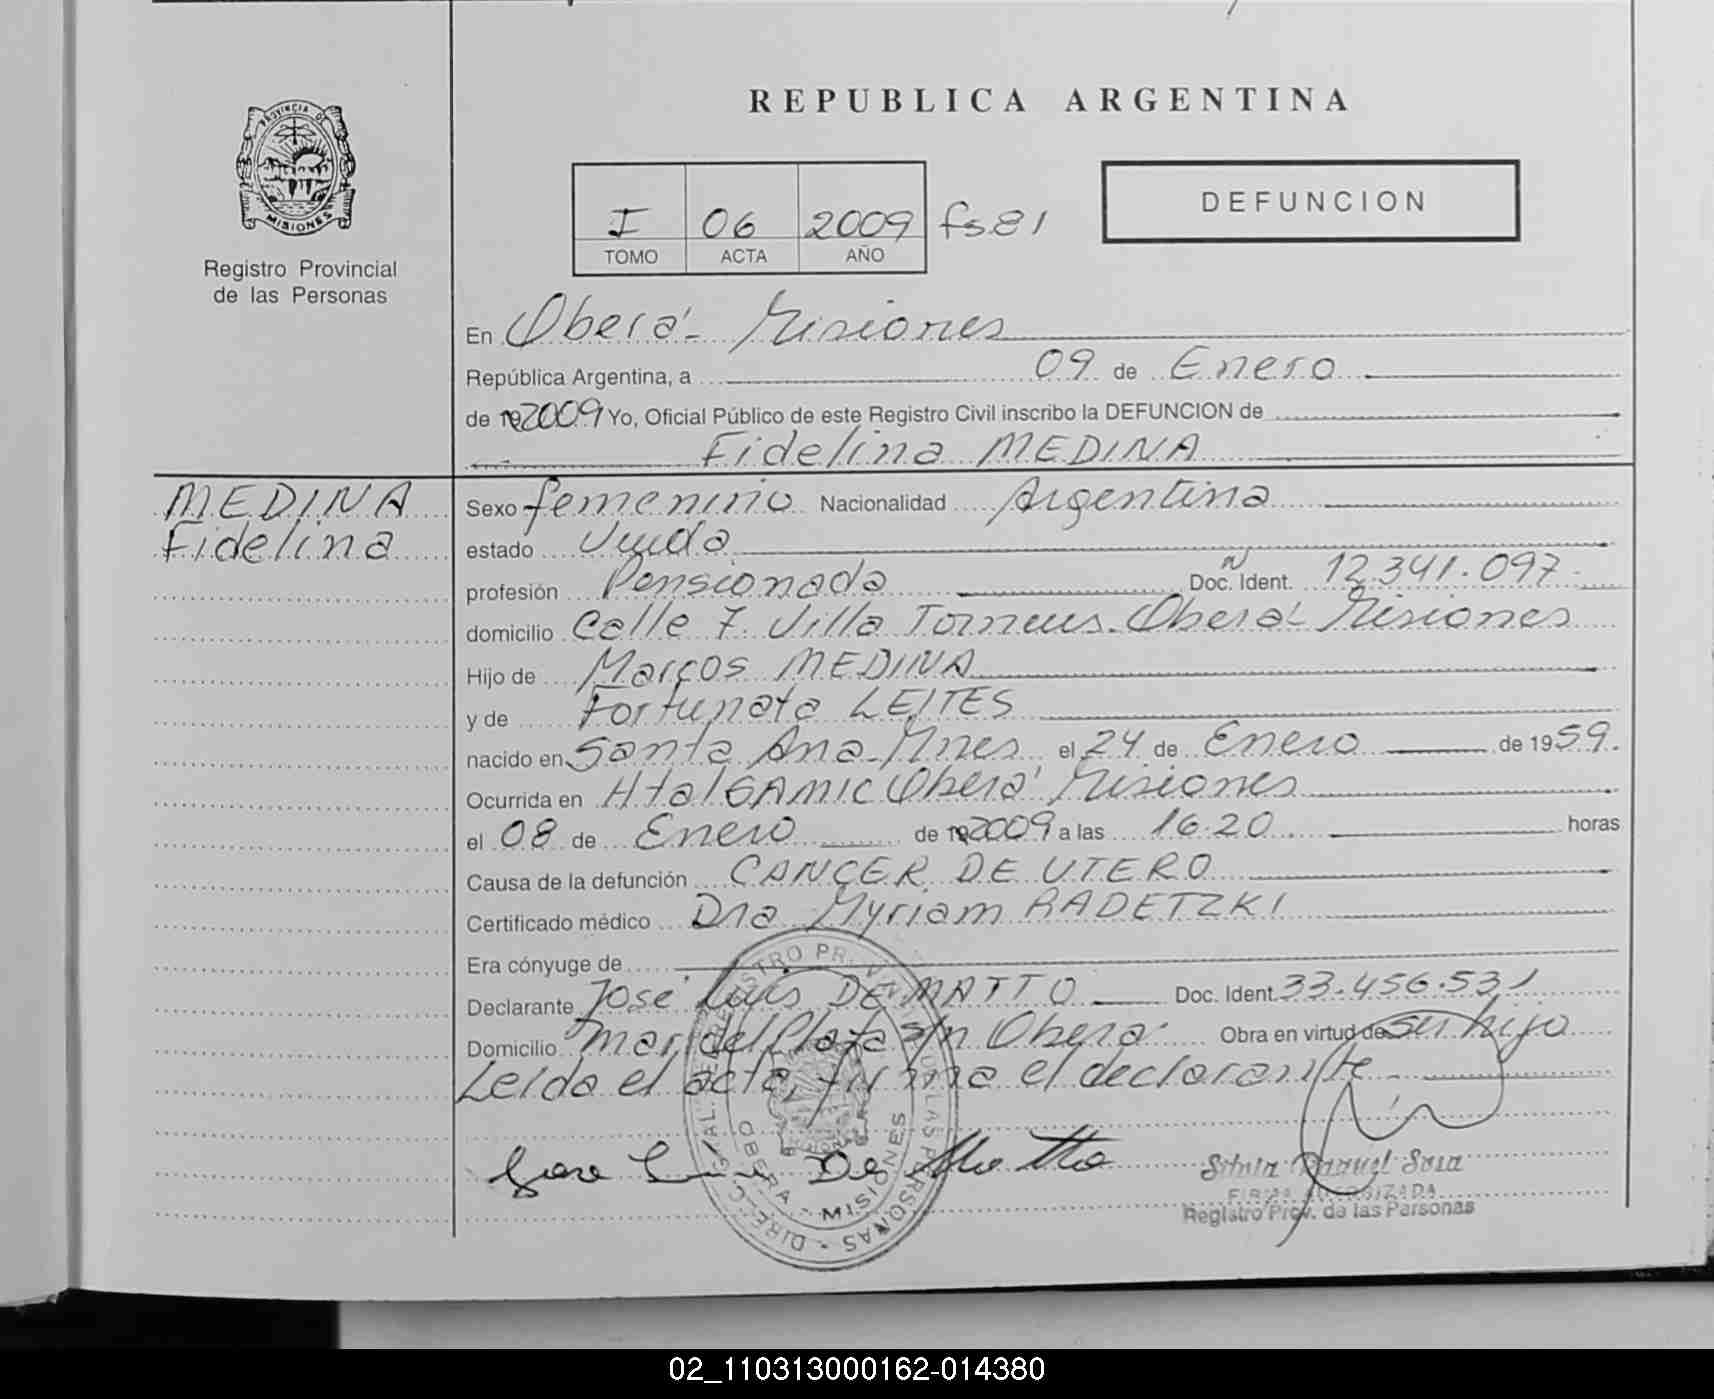 REPUBLICA ARGENTINA
PROVINCIA DE
MISIONES
Registro Provincial
de las Personas
I 06 2009 fs 81
TOMO ACTA AÑO
DEFUNCION
En Oberá - Misiones
República Argentina, a 09 de Enero
de 192009 Yo, Oficial Público de este Registro Civil inscribo la DEFUNCION de
Fidelina MEDINA
MEDINA
Fidelina
Sexo femenino Nacionalidad Argentina
estado Viuda
profesión Pensionada Doc. Ident. 12.341.097
domicilio Calle 7 Villa Oberá Misiones
Hijo de Marcos MEDINA
y de Fortunata LEITES
nacido en Santa Ana - Mnes el 24 de Enero de 1959.
Ocurrida en Htal SAMIC Oberá Misiones
el 08 de Enero de 192009 a las 16.20 horas
Causa de la defunción CANCER DE UTERO
Certificado médico Dra Myriam RADETZKI
Era cónyuge de
Declarante José Luis DE MATTO Doc. Ident. 33.456.531
Domicilio Mar del Plata s/n Oberá Obra en virtud de su hijo
Leída el acta, firma el declarante
Jose Luis De Matto
OBERA - MISIONES
Silvia Raquel Sosa
FIRMA AUTORIZADA
Registro Prov. de las Personas
02_110313000162-014380